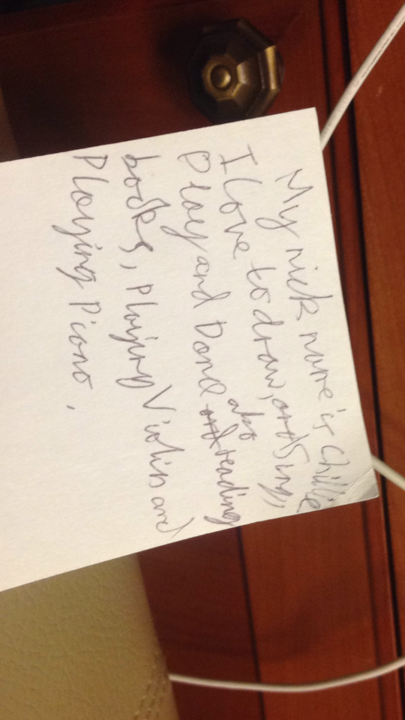 My nick name is Chillie
I love to draw, and Sing,
Play and Dance also reading
books, Playing Violin and
Playing Piano.